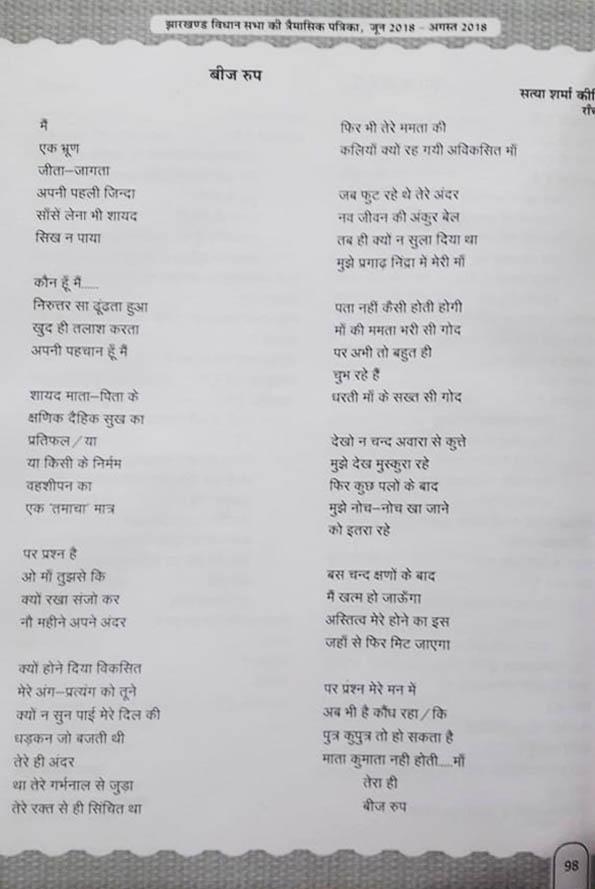 झारखण्ड विधान सभा की त्रैमासिक पत्रिका, जून 2018 - अगस्त 2018
बीज रुप
सत्या शर्मा
मैं
एक भ्रूण
जीता-जागता
अपनी पहली जिन्दा
साँसें लेना भी शायद
सिख न पाया
कौन हूँ मैं......
निरुत्तर सा ढूंढता हुआ
खुद ही तलाश करता
अपनी पहचान हूँ मैं
शायद माता-पिता के
क्षणिक दैहिक सुख का
प्रतिफल / या
या किसी के निर्मम
वहशीपन का
एक 'तमाचा' मात्र
पर प्रश्न है
ओ माँ तुझसे कि
क्यों रखा संजो कर
नौ महीने अपने अंदर
क्यों होने दिया विकसित
मेरे अंग-प्रत्यंग को तूने
क्यों न सुन पाई मेरे दिल की
धड़कन जो बजती थी
तेरे ही अंदर
था तेरे गर्भनाल से जुड़ा
तेरे रक्त से ही सिंचित था
फिर भी तेरे ममता की
कलियाँ क्यों रह गयी अविकसित माँ
जब फुट रहे थे तेरे अंदर
नव जीवन की अंकुर बेल
तब ही क्यों न सुला दिया था
मुझे प्रगाढ़ निंद्रा में मेरी माँ
पता नहीं कैसी होती होगी
माँ की ममता भरी सी गोद
पर अभी तो बहुत ही
चुभ रहे हैं
धरती माँ के सख्त सी गोद
देखो न चन्द अवारा से कुत्ते
मुझे देख मुस्कुरा रहे
फिर कुछ पलों के बाद
मुझे नोच-नोच खा जाने
को इतरा रहे
बस चन्द क्षणों के बाद
मैं खत्म हो जाऊँगा
अस्तित्व मेरे होने का इस
जहाँ से फिर मिट जाएगा
पर प्रश्न मेरे मन में
अब भी है कौंध रहा / कि
पुत्र कुपुत्र तो हो सकता है
माता कुमाता नही होती....माँ
तेरा ही
बीज रुप
98